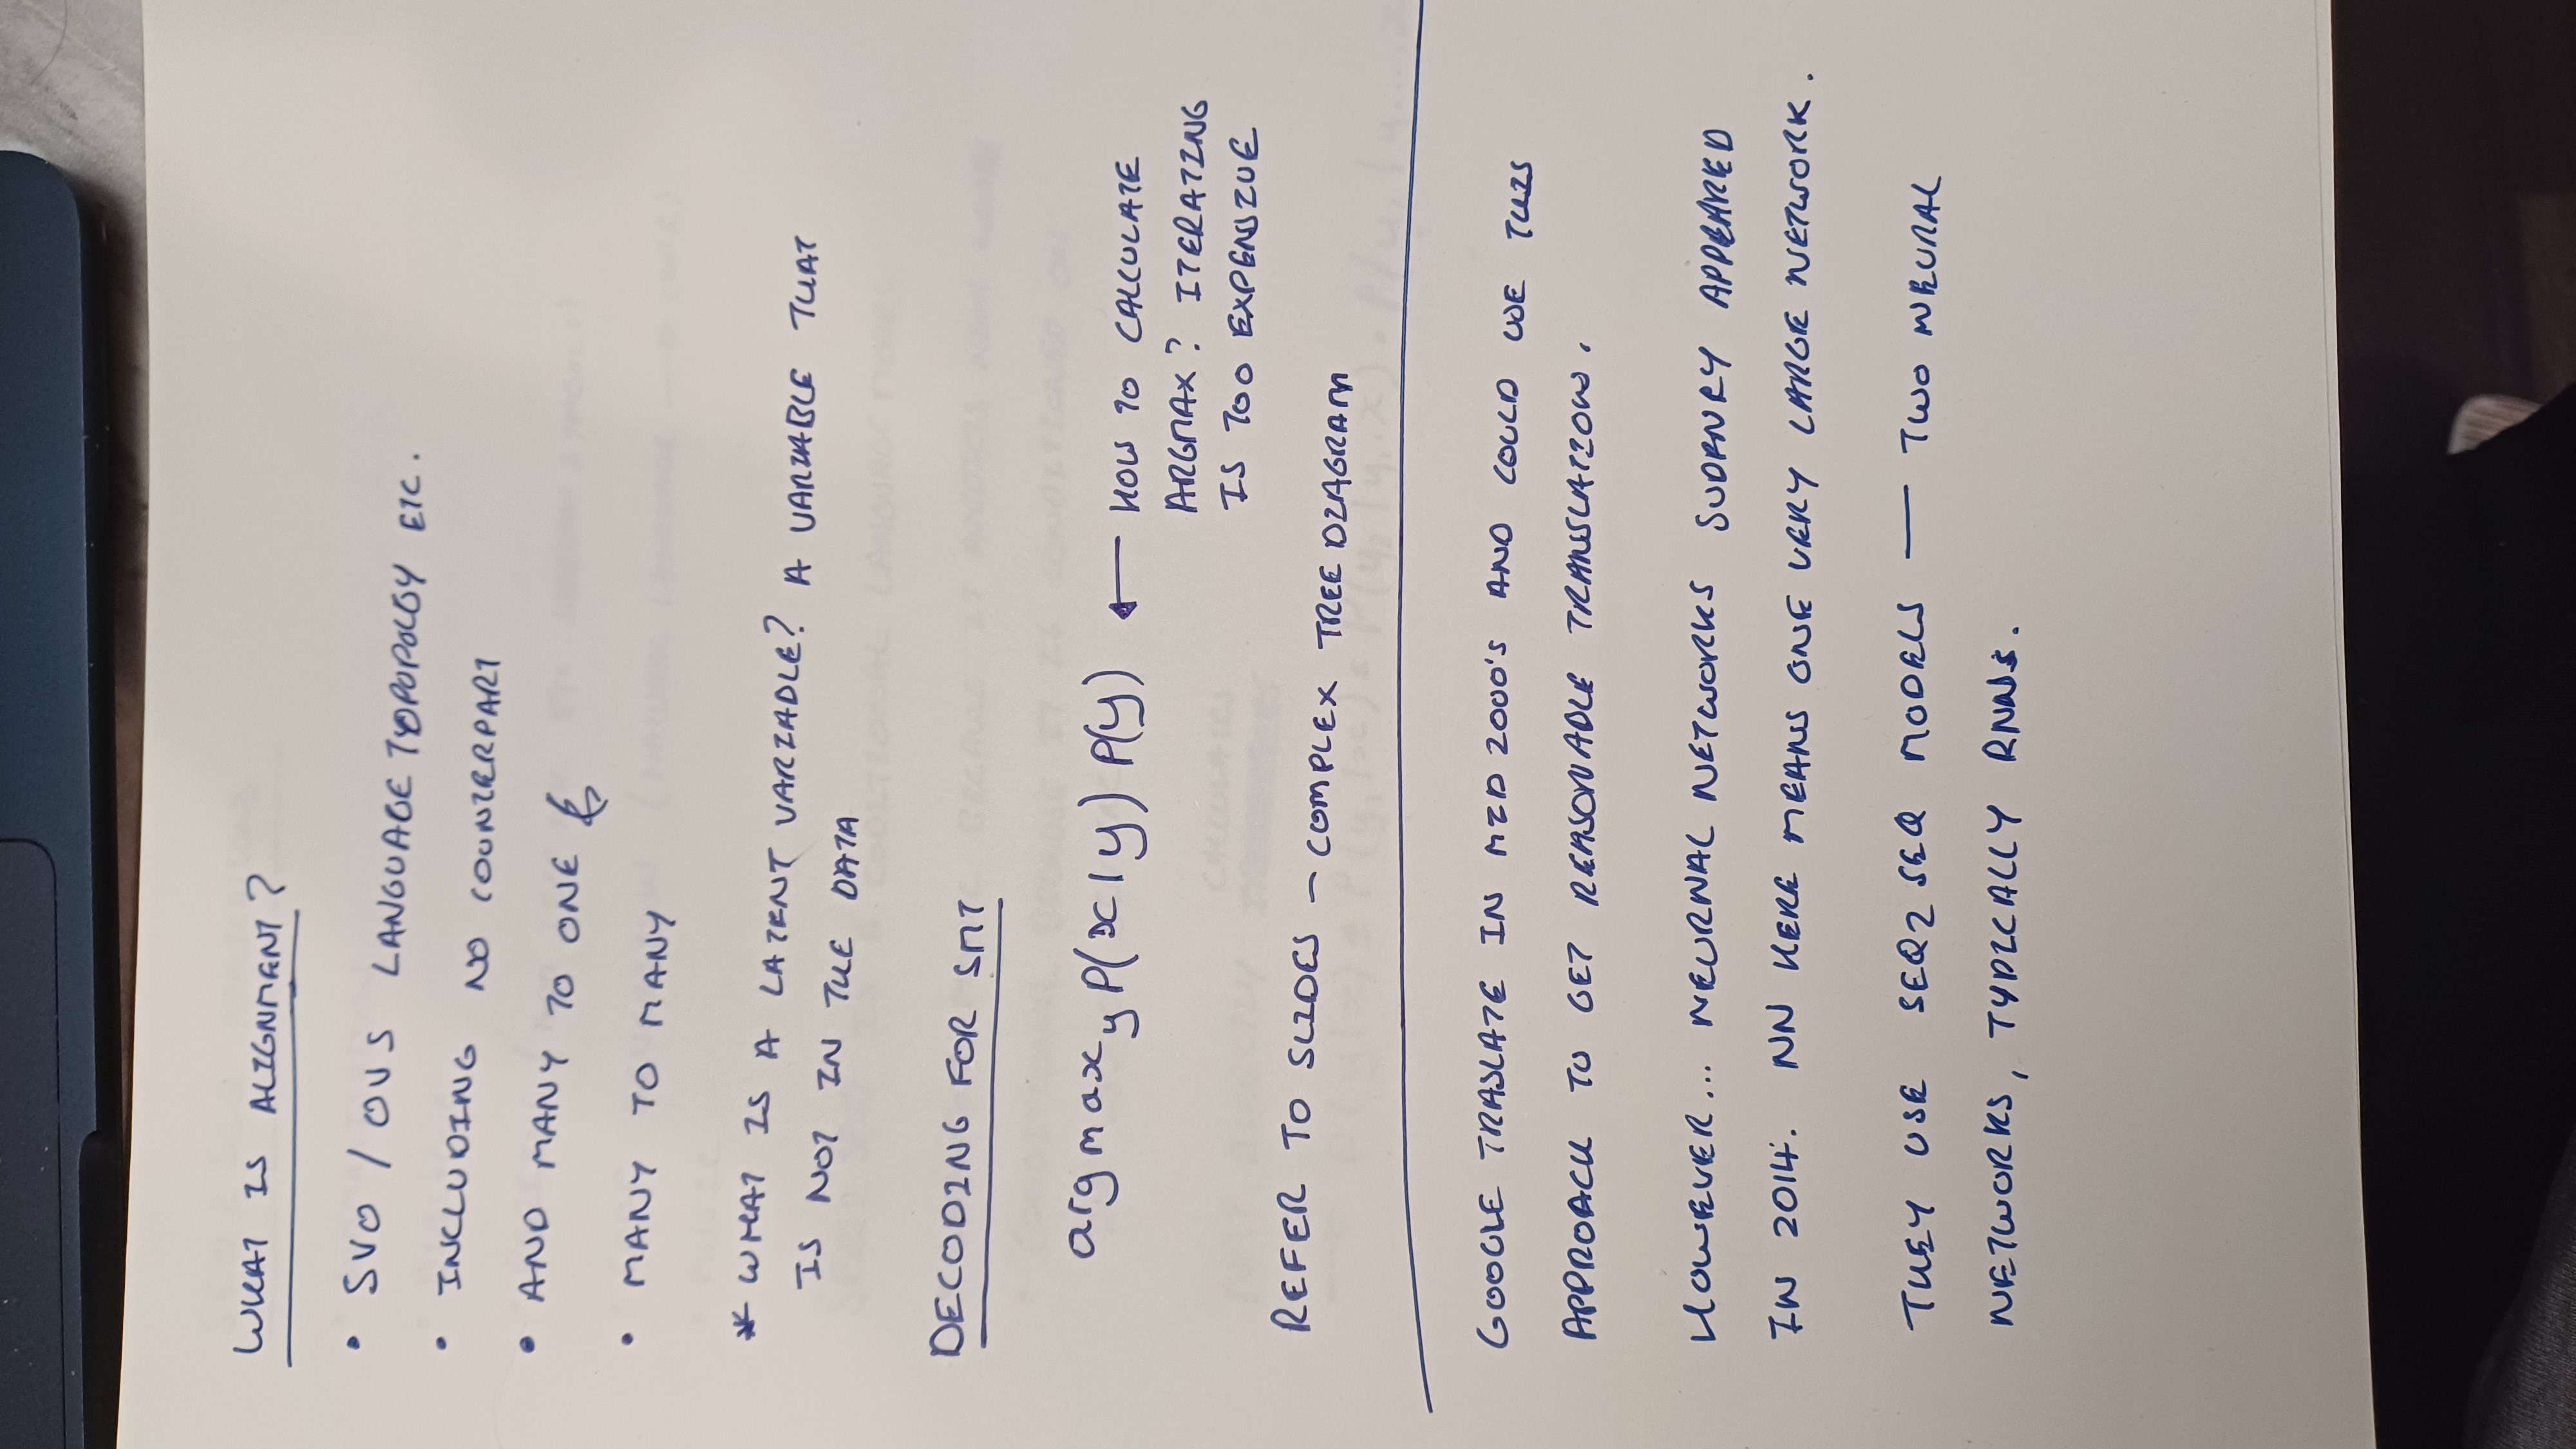 WHAT IS ALIGNMENT?
• SVO / OVS LANGUAGE TYPOPOLGY ETC.
• INCLUDING NO COUNTERPART
• AND MANY TO ONE
• MANY TO MANY
* WHAT IS A LATENT VARIABLE? A VARIABLE THAT
IS NOT IN THE DATA
DECODING FOR SMT
argmax_y P(x|y) P(y) ← HOW TO CALCULATE
ARGMAX? ITERATING
IS TOO EXPENSIVE
REFER TO SLIDES - COMPLEX TREE DIAGRAM
GOOGLE TRASLATE IN MID 2000'S AND COULD USE THIS
APPROACH TO GET REASONABLE TRANSLATION.
HOWEVER... NEURNAL NETWORKS SUDENLY APPEARED
IN 2014. NN HERE MEANS ONE VERY LARGE NETWORK.
THEY USE SEQ2SEQ MODELS — TWO NEURAL
NETWORKS, TYPICALLY RNNs.